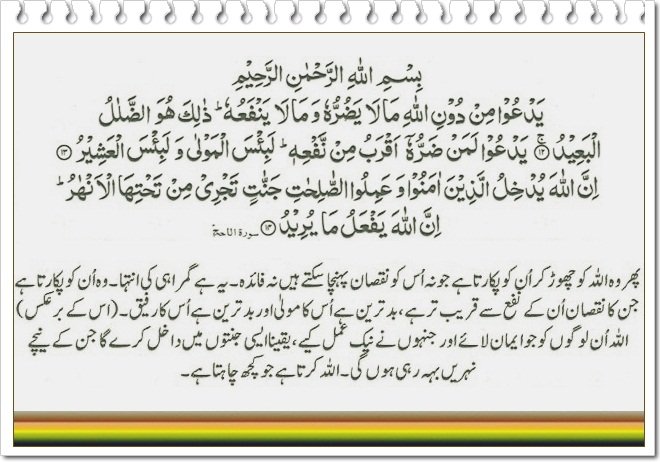 بِسْمِ اللهِ الرَّحْمٰنِ الرَّحِيْمِ
يَدْعُوْا مِنْ دُوْنِ اللهِ مَا لَا يَضُرُّهٗ وَ مَا لَا يَنْفَعُهٗ ؕ ذٰلِكَ هُوَ الضَّلٰلُ
الْبَعِيْدُ ۚ﴿۱۲﴾ يَدْعُوْا لَمَنْ ضَرُّهٗۤ اَقْرَبُ مِنْ نَّفْعِهٖ ؕ لَبِئْسَ الْمَوْلٰى وَ لَبِئْسَ الْعَشِيْرُ ﴿۱۳﴾
اِنَّ اللهَ يُدْخِلُ الَّذِيْنَ اٰمَنُوْا وَ عَمِلُوا الصّٰلِحٰتِ جَنّٰتٍ تَجْرِيْ مِنْ تَحْتِهَا الْاَنْهٰرُ ؕ
اِنَّ اللهَ يَفْعَلُ مَا يُرِيْدُ ﴿۱۴﴾ سورة الحج
پھر وہ اللہ کو چھوڑ کر اُن کو پکارتا ہے جو نہ اُس کو نقصان پہنچا سکتے ہیں نہ فائدہ۔ یہ ہے گمراہی کی انتہا۔ وہ اُن کو پکارتا ہے
جن کا نقصان اُن کے نفع سے قریب تر ہے، بدترین ہے اُس کا مولیٰ اور بدترین ہے اُس کا رفیق۔ (اس کے برعکس)
اللہ اُن لوگوں کو جو ایمان لائے اور جنہوں نے نیک عمل کیے، یقیناً ایسی جنتوں میں داخل کرے گا جن کے نیچے
نہریں بہہ رہی ہوں گی۔ اللہ کرتا ہے جو کچھ چاہتا ہے۔